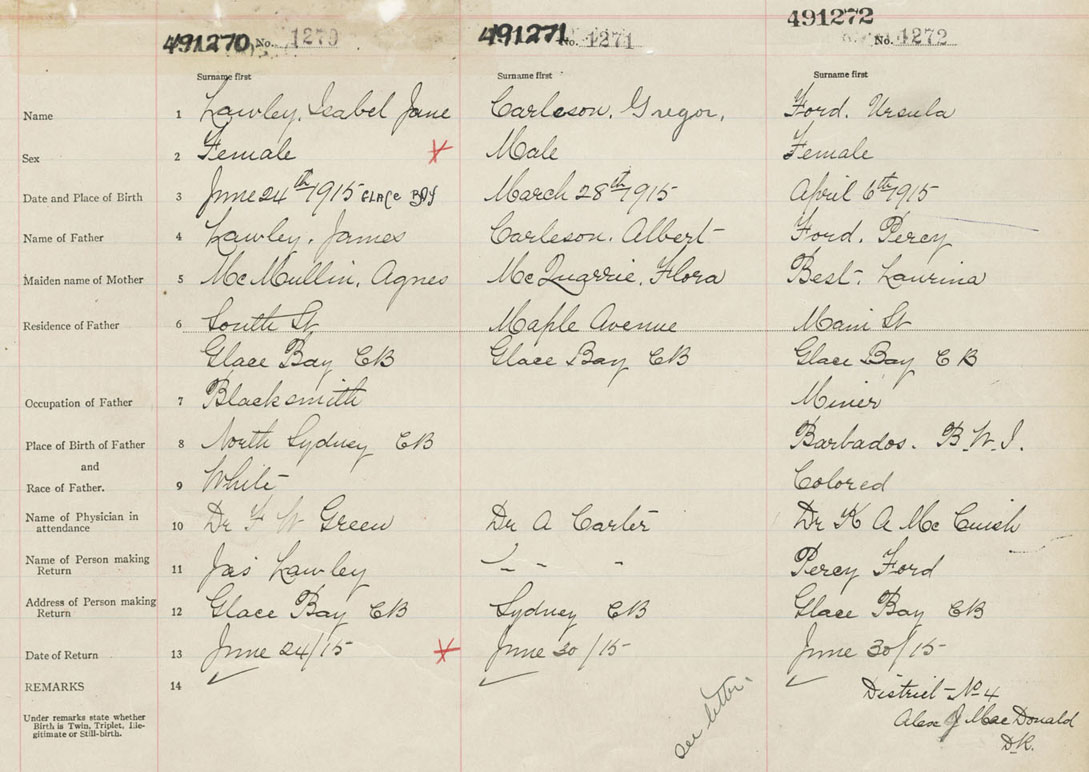 491270 No. 1270 491271 No. 1271 491272 No. 1272
Surname first Surname first Surname first
Name 1 Lawley, Isabel Jane Carleson, Gregor, Ford, Ursula
Sex 2 Female x Male Female
Date and Place of Birth 3 June 24th 1915 GLACE BAY March 28th 1915 April 6th 1915
Name of Father 4 Lawley, James Carleson, Albert Ford, Percy
Maiden name of Mother 5 McMullin, Agnes McQuarrie, Flora Best, Laurina
Residence of Father 6 South St Maple Avenue Main St
Glace Bay CB Glace Bay CB Glace Bay CB
Occupation of Father 7 Blacksmith Miner
Place of Birth of Father 8 North Sydney CB Barbados. B.W.I.
and
Race of Father. 9 White Colored
Name of Physician in
attendance 10 Dr F W Green Dr A Carter Dr K A McCuish
Name of Person making
Return 11 Jas Lawley " " " Percy Ford
Address of Person making
Return 12 Glace Bay CB Sydney CB Glace Bay CB
Date of Return 13 June 24/15 x June 30/15 June 30/15
REMARKS 14 ✓ ✓ see letter. ✓ District No 4
Under remarks state whether
Birth is Twin, Triplet, Ille-
gitimate or Still-birth.
Alex J MacDonald
D.R.